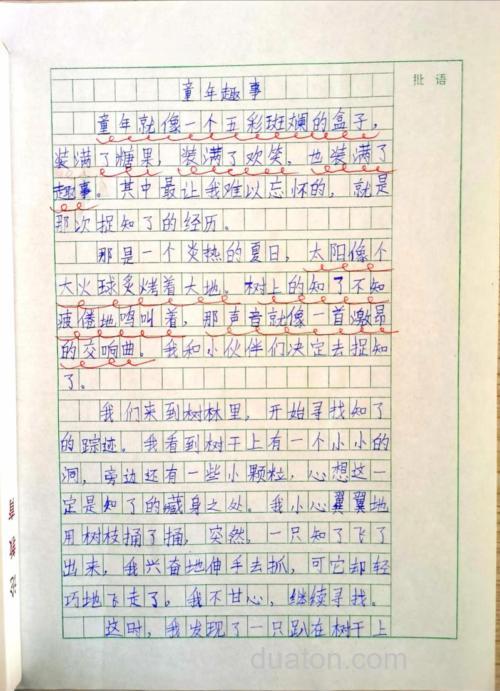 批语
童年趣事
童年就像一个五彩斑斓的盒子，
装满了糖果，装满了欢笑，也装满了
趣事。其中最让我难以忘怀的，就是
那次捉知了的经历。
那是一个炎热的夏日，太阳像个
大火球炙烤着大地。树上的知了不知
疲倦地鸣叫着，那声音就像一首激昂
的交响曲。我和小伙伴们决定去捉知
了。
我们来到树林里，开始寻找知了
的踪迹。我看到树干上有一个小小的
洞，旁边还有一些小颗粒，心想这一
定是知了的藏身之处。我小心翼翼地
用树枝捅了捅，突然，一只知了飞了
出来，我兴奋地伸手去抓，可它却轻
巧地飞走了。我不甘心，继续寻找。
这时，我发现了一只趴在树干上
duaton.com